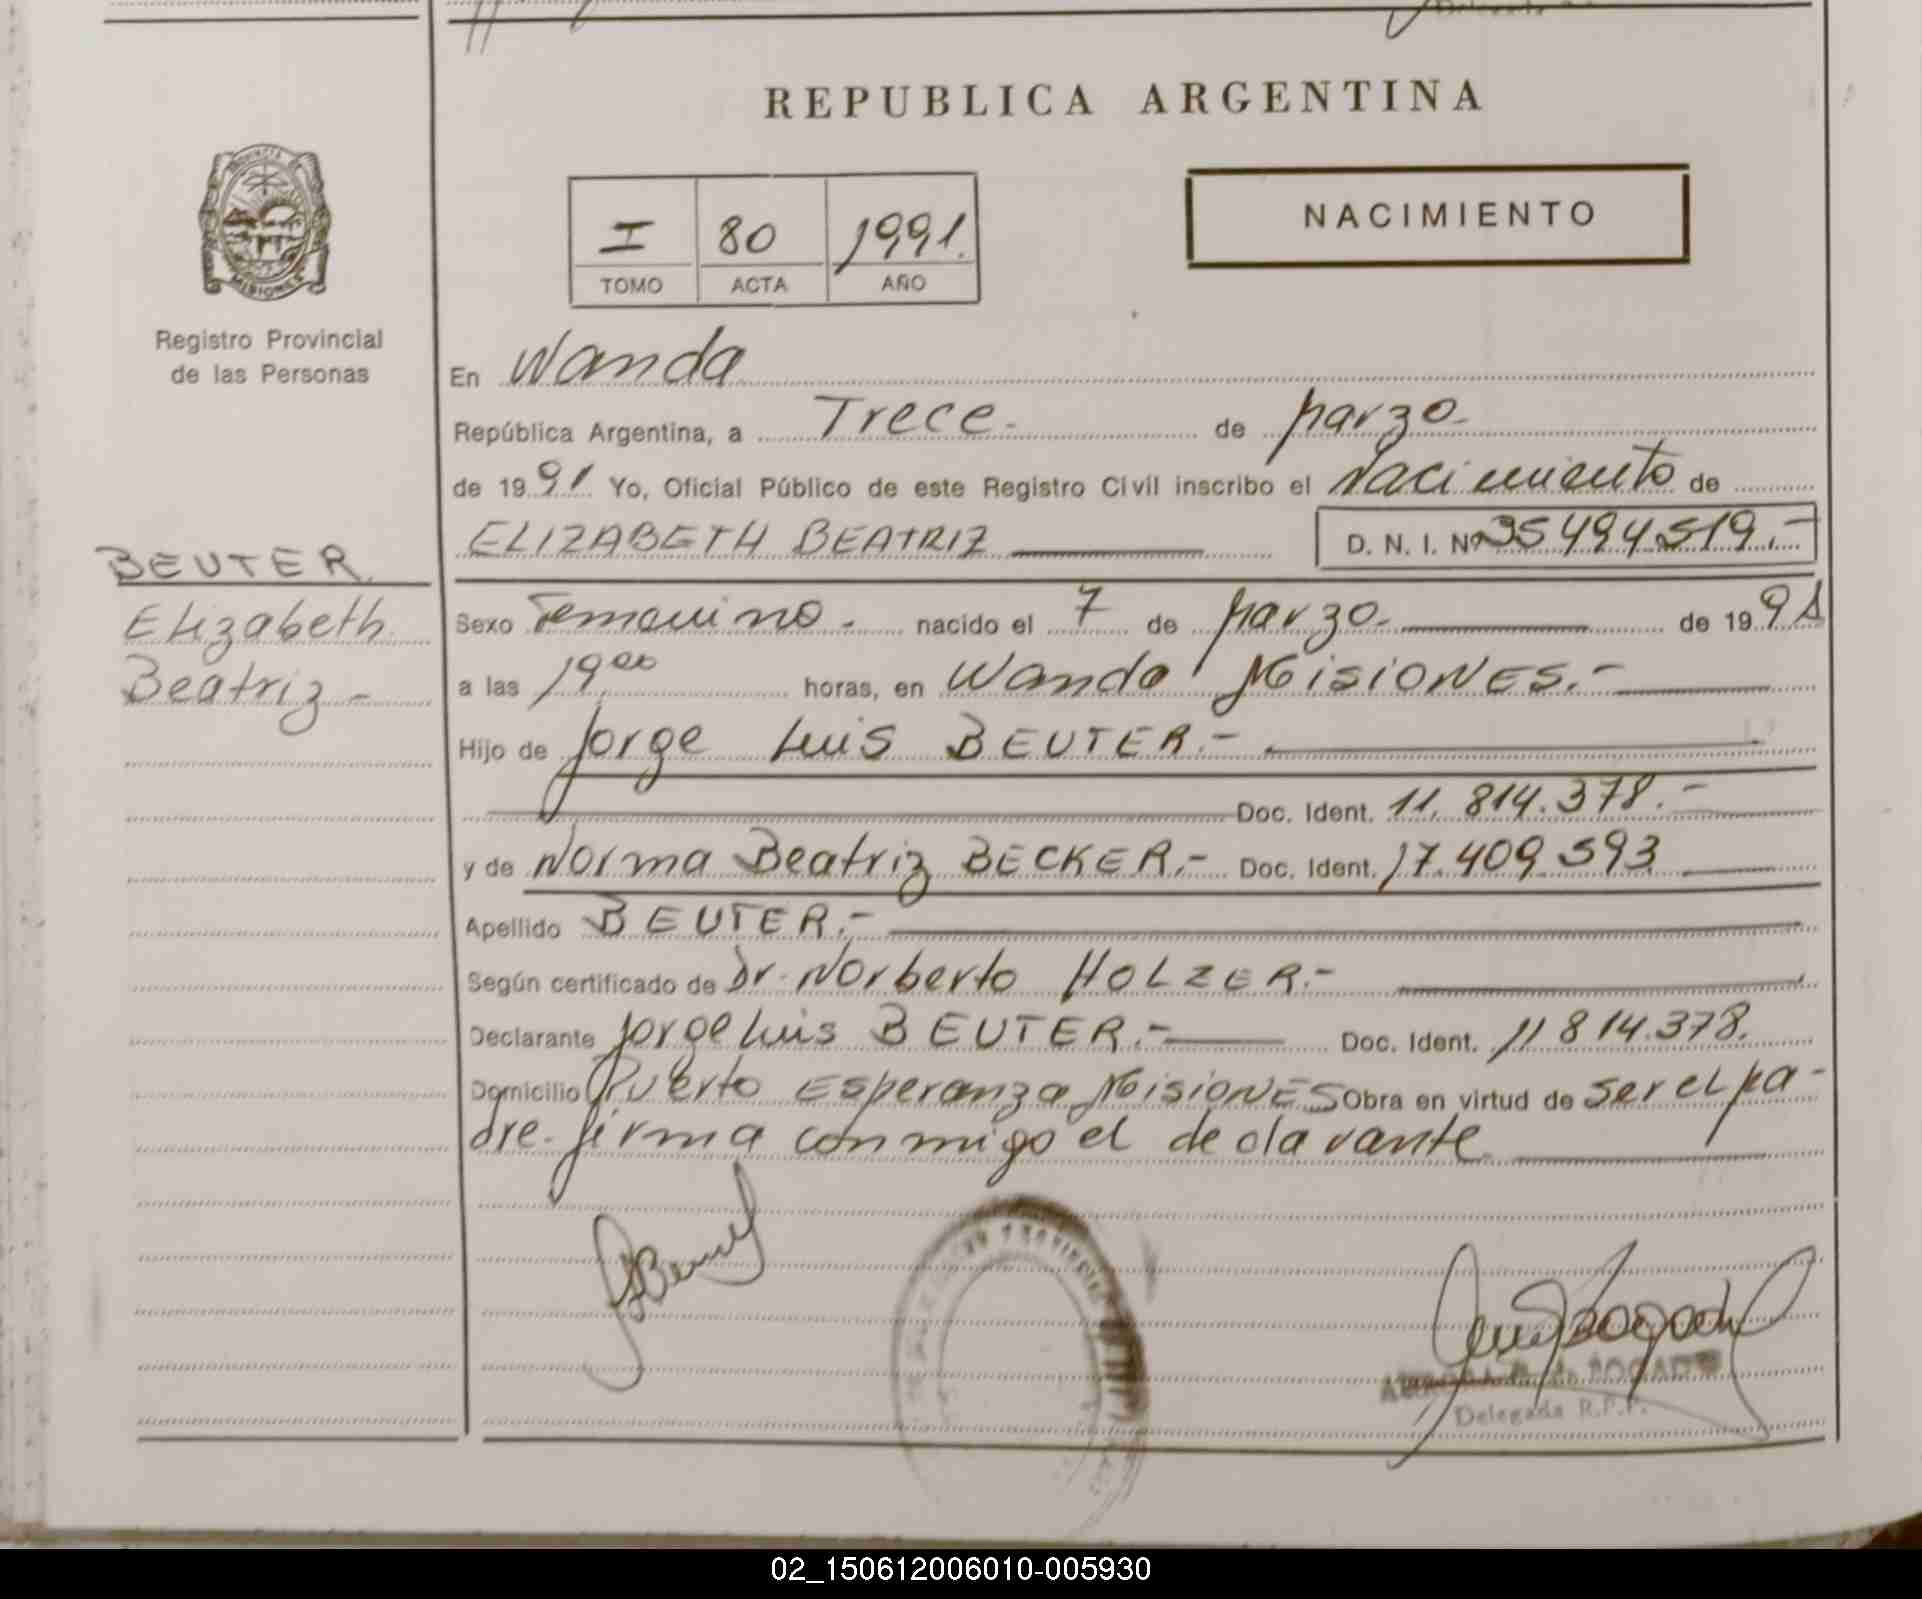 REPUBLICA ARGENTINA
PROVINCIA DE
MISIONES
Registro Provincial
de las Personas
I 80 1991.
TOMO ACTA AÑO
NACIMIENTO
En Wanda
República Argentina, a Trece.- de Marzo.-
de 1991 Yo, Oficial Público de este Registro Civil inscribo el Nacimiento de
ELIZABETH BEATRIZ D. N. I. Nº 35494519.-
BEUTER
Elizabeth
Beatriz -
Sexo Femenino.- nacido el 7 de Marzo.- de 1991
a las 19,00 horas, en Wanda Misiones.-
Hijo de Jorge Luis BEUTER.-
Doc. Ident. 11.814.378.-
y de Norma Beatriz BECKER.- Doc. Ident. 17.409.593
Apellido BEUTER.-
Según certificado de Dr. Norberto HOLZER.-
Declarante Jorge Luis BEUTER.- Doc. Ident. 11814.378.
Domicilio Puerto Esperanza Misiones Obra en virtud de ser el pa-
dre. firma conmigo el declarante
BOGADO
Delegada R.P.P.
02_150612006010-005930